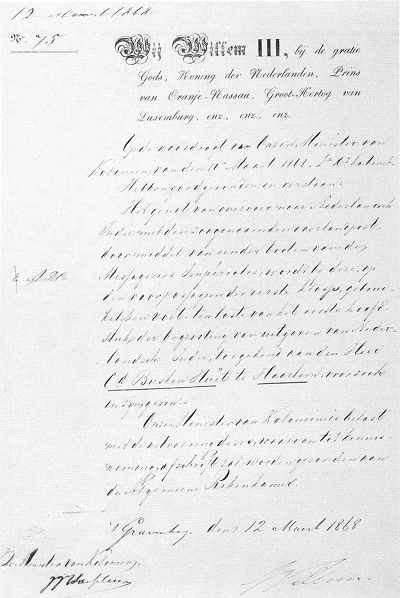 12 Maart 1868
No. 75
Wij Willem III, bij de gratie
Gods, Koning der Nederlanden, Prins
van Oranje-Nassau, Groot-Hertog van
Luxemburg, enz., enz., enz.
Op de voordragt van Onzen Minister van
Kolonien van den Maart 1868,
Hebben goedgevonden en verstaan:
Het genot van overvoer naar Nederlandsch
Indie met den zoogenaamden overlandpost,
door middel van een der booten van de
Messageries Impériales, wordt bij deze, op
den voet van passagier der eerste klasse, gebruikelijken
ten laste van het eerste hoofdstuk
der begrooting van uitgaven van Nederlandsch
Indie, toegekend aan den Heer
Cd. Busken Huët te Haarlem, voor zich
en zijn gezin.
Onze Minister van Kolonien is belast
met de uitvoering dezes, waarvan tot kennisneming,
afschrift zal worden gezonden aan
de Algemeene Rekenkamer.
's Gravenhage den 12 Maart 1868
Willem
De Minister van Kolonien,